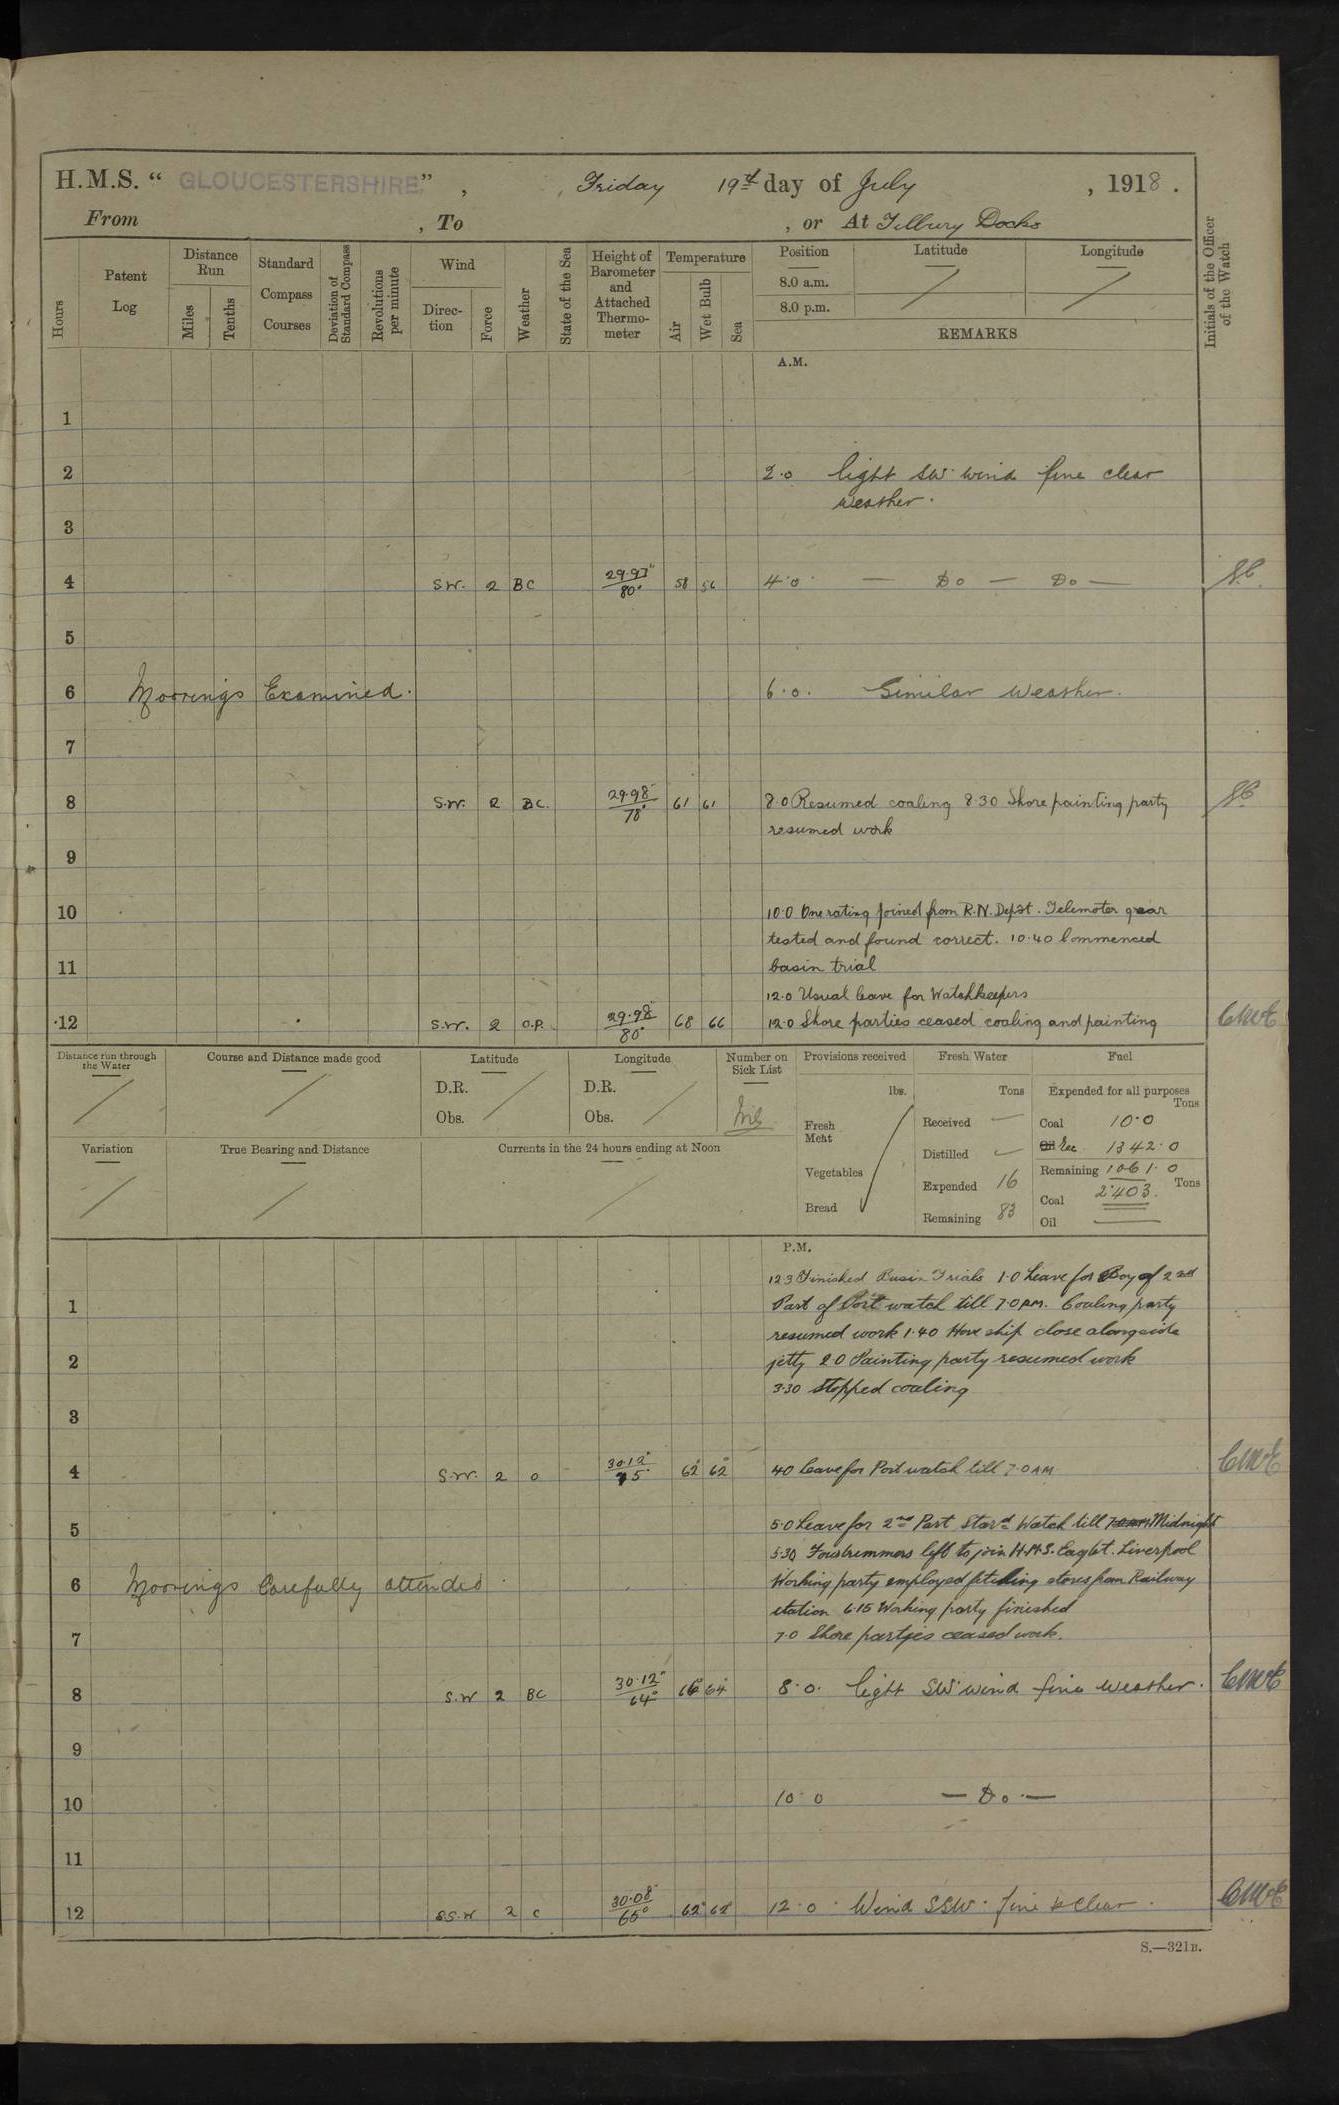 H.M.S. “ GLOUCESTERSHIRE ” , Friday 19th day of July , 1918 .
From , To , or At Tilbury Docks
Hours
Patent Log
Distance Run
Miles
Tenths
Standard Compass Courses
Deviation of Standard Compass
Revolutions per minute
Wind
Direction
Force
Weather
State of the Sea
Height of Barometer and Attached Thermometer
Temperature
Air
Wet Bulb
Sea
Position
8.0 a.m.
8.0 p.m.
Latitude
Longitude
REMARKS
Initials of the Officer of the Watch
A.M.
1
2 2.0 light SW. wind fine clear
weather.
3
4 S.W. 2 BC 29.97 80° 58 56 4.0 — Do — Do —
5
6 Moorings Examined. 6.0. Similar weather.
7
8 S.W. 2 BC. 29.98 78° 61 61 8.0 Resumed coaling 8.30 Shore painting party
resumed work
9
10 10.0 One rating joined from R.N. Depôt. Telemotor gear
tested and found correct. 10.40 Commenced
11 basin trial
12.0 Usual leave for Watchkeepers
12 S.W. 2 O.P. 29.98 80° 68 66 12.0 Shore parties ceased coaling and painting
Distance run through the Water
Course and Distance made good
Latitude
D.R.
Obs.
Longitude
D.R.
Obs.
Number on Sick List
Nil
Provisions received
lbs.
Fresh Meat
Vegetables
Bread
Fresh Water
Tons
Received —
Distilled —
Expended 16
Remaining 83
Fuel
Expended for all purposes
Tons
Coal 10.0
Oil Rec 1342.0
Remaining 1061.0
Tons
Coal 2403.
Oil —
Variation
True Bearing and Distance
Currents in the 24 hours ending at Noon
P.M.
12.3 Finished Basin Trials 1.0 Leave for Boy of 2nd
1 Part of Port watch till 7.0 A.M. Coaling party
resumed work 1.40 Hove ship close alongside
2 jetty 2.0 Painting party resumed work
3.30 Stopped coaling
3
4 S.W. 2 O 30.12 75° 62° 62° 4.0 Leave for Port watch till 7.0 AM
5 5.0 Leave for 2nd Part Stard Watch till 7.0 AM Midnight
5.30 Four trimmers left to join H.M.S. Eaglet. Liverpool
6 Moorings Carefully attended Working party employed fetching stores from Railway
station 6.15 Working party finished
7 7.0 Shore parties ceased work.
8 S.W 2 BC 30.12 64° 66° 64° 8.0. light SW. wind fine weather.
9
10 10.0 — Do. —
11
12 SS.W 2 C 30.08 65° 62° 62° 12.0 Wind SSW. fine & Clear.
S.—321B.